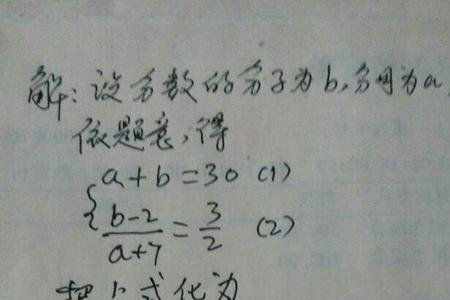 解：设分数的分子为b,分母为a,
依题意,得
a+b=30 (1)
b-2/a+7=3/2 (2)
把上式化为